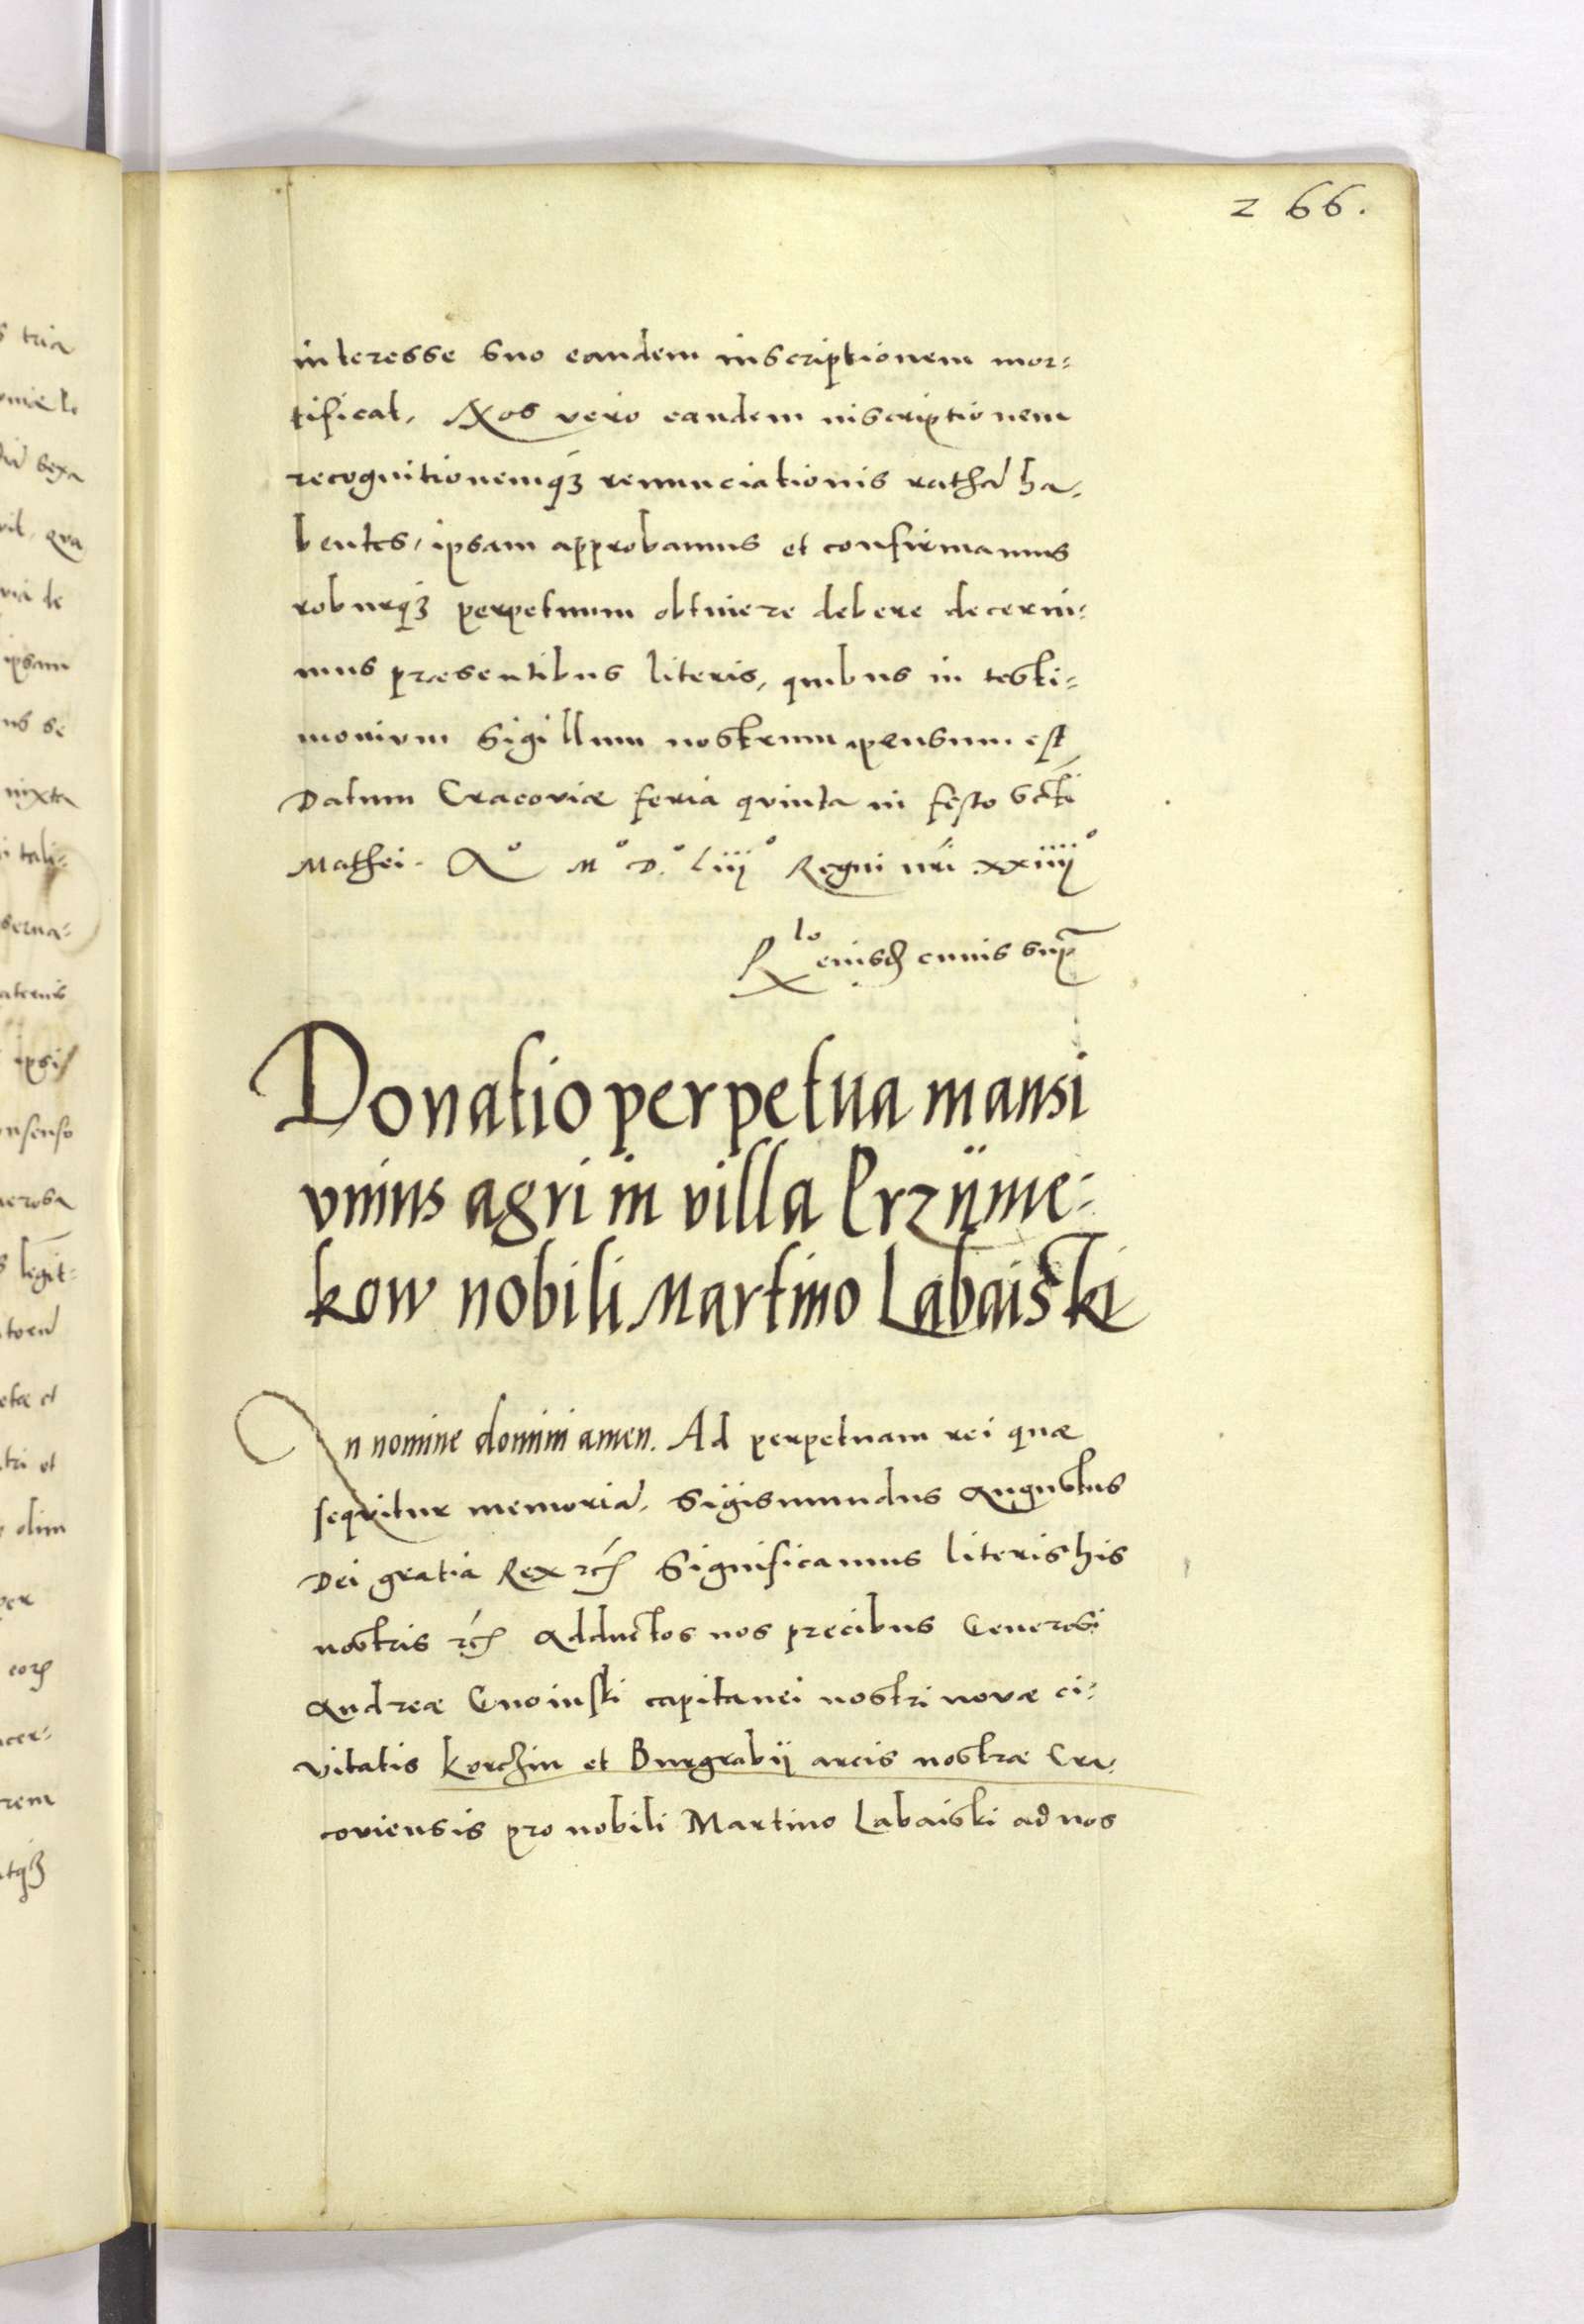 266.
interesse suo eandem inscriptionem mor=
tificat, Nos vero eandem inscriptionem
recognitionemq3 renunciationis rathã ha,
bentes, ipsam approbamus et confirmamus
roburq3 perpetuum obtinere debere decerni=
mus præsentibus literis, quibus in testi=
monium Sigillum nostrum apensum est
Datum Cracoviæ feria qvinta in festo scti
Mathei. Aº Mº Dº Liijº Regni nri xxiiijº
Rlo eiusd cuius supra
Donatio perpetua mansi
vnius agri in villa Przÿme=
kow nobili Martino Labaiski
In nomine domini amen. Ad perpetuam rei quæ
seqvitur memoriã, Sigismundus Augustus
Dei gratia Rex etc Significamus literis his
nostris etc Adductos nos precibus Generosi
Andreæ Gnoinski capitanei nostri novæ ci=
vitatis korczin et Burgrabij arcis nostræ Cra,
coviensis pro nobili Martino Labaiski ad nos